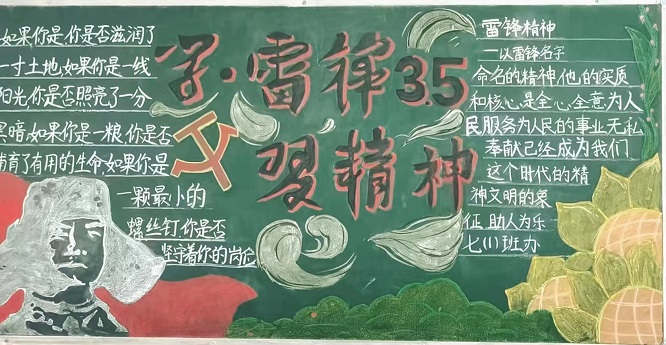 如果你是,你是否滋润了
一寸土地,如果你是一线
阳光,你是否照亮了一分
黑暗,如果你是一粮,你是否
哺育了有用的生命,如果你是
一颗最小的
螺丝钉,你是否
坚守着你的岗位
学·雷锋3.5
习精神
雷锋精神
一以雷锋名子
命名的精神,他,的实质
和核心是全心全意为人
民服务为人民的事业无私
奉献已经成为我们
这个时代的精
神文明的象
征,助人为乐
七(1)班办